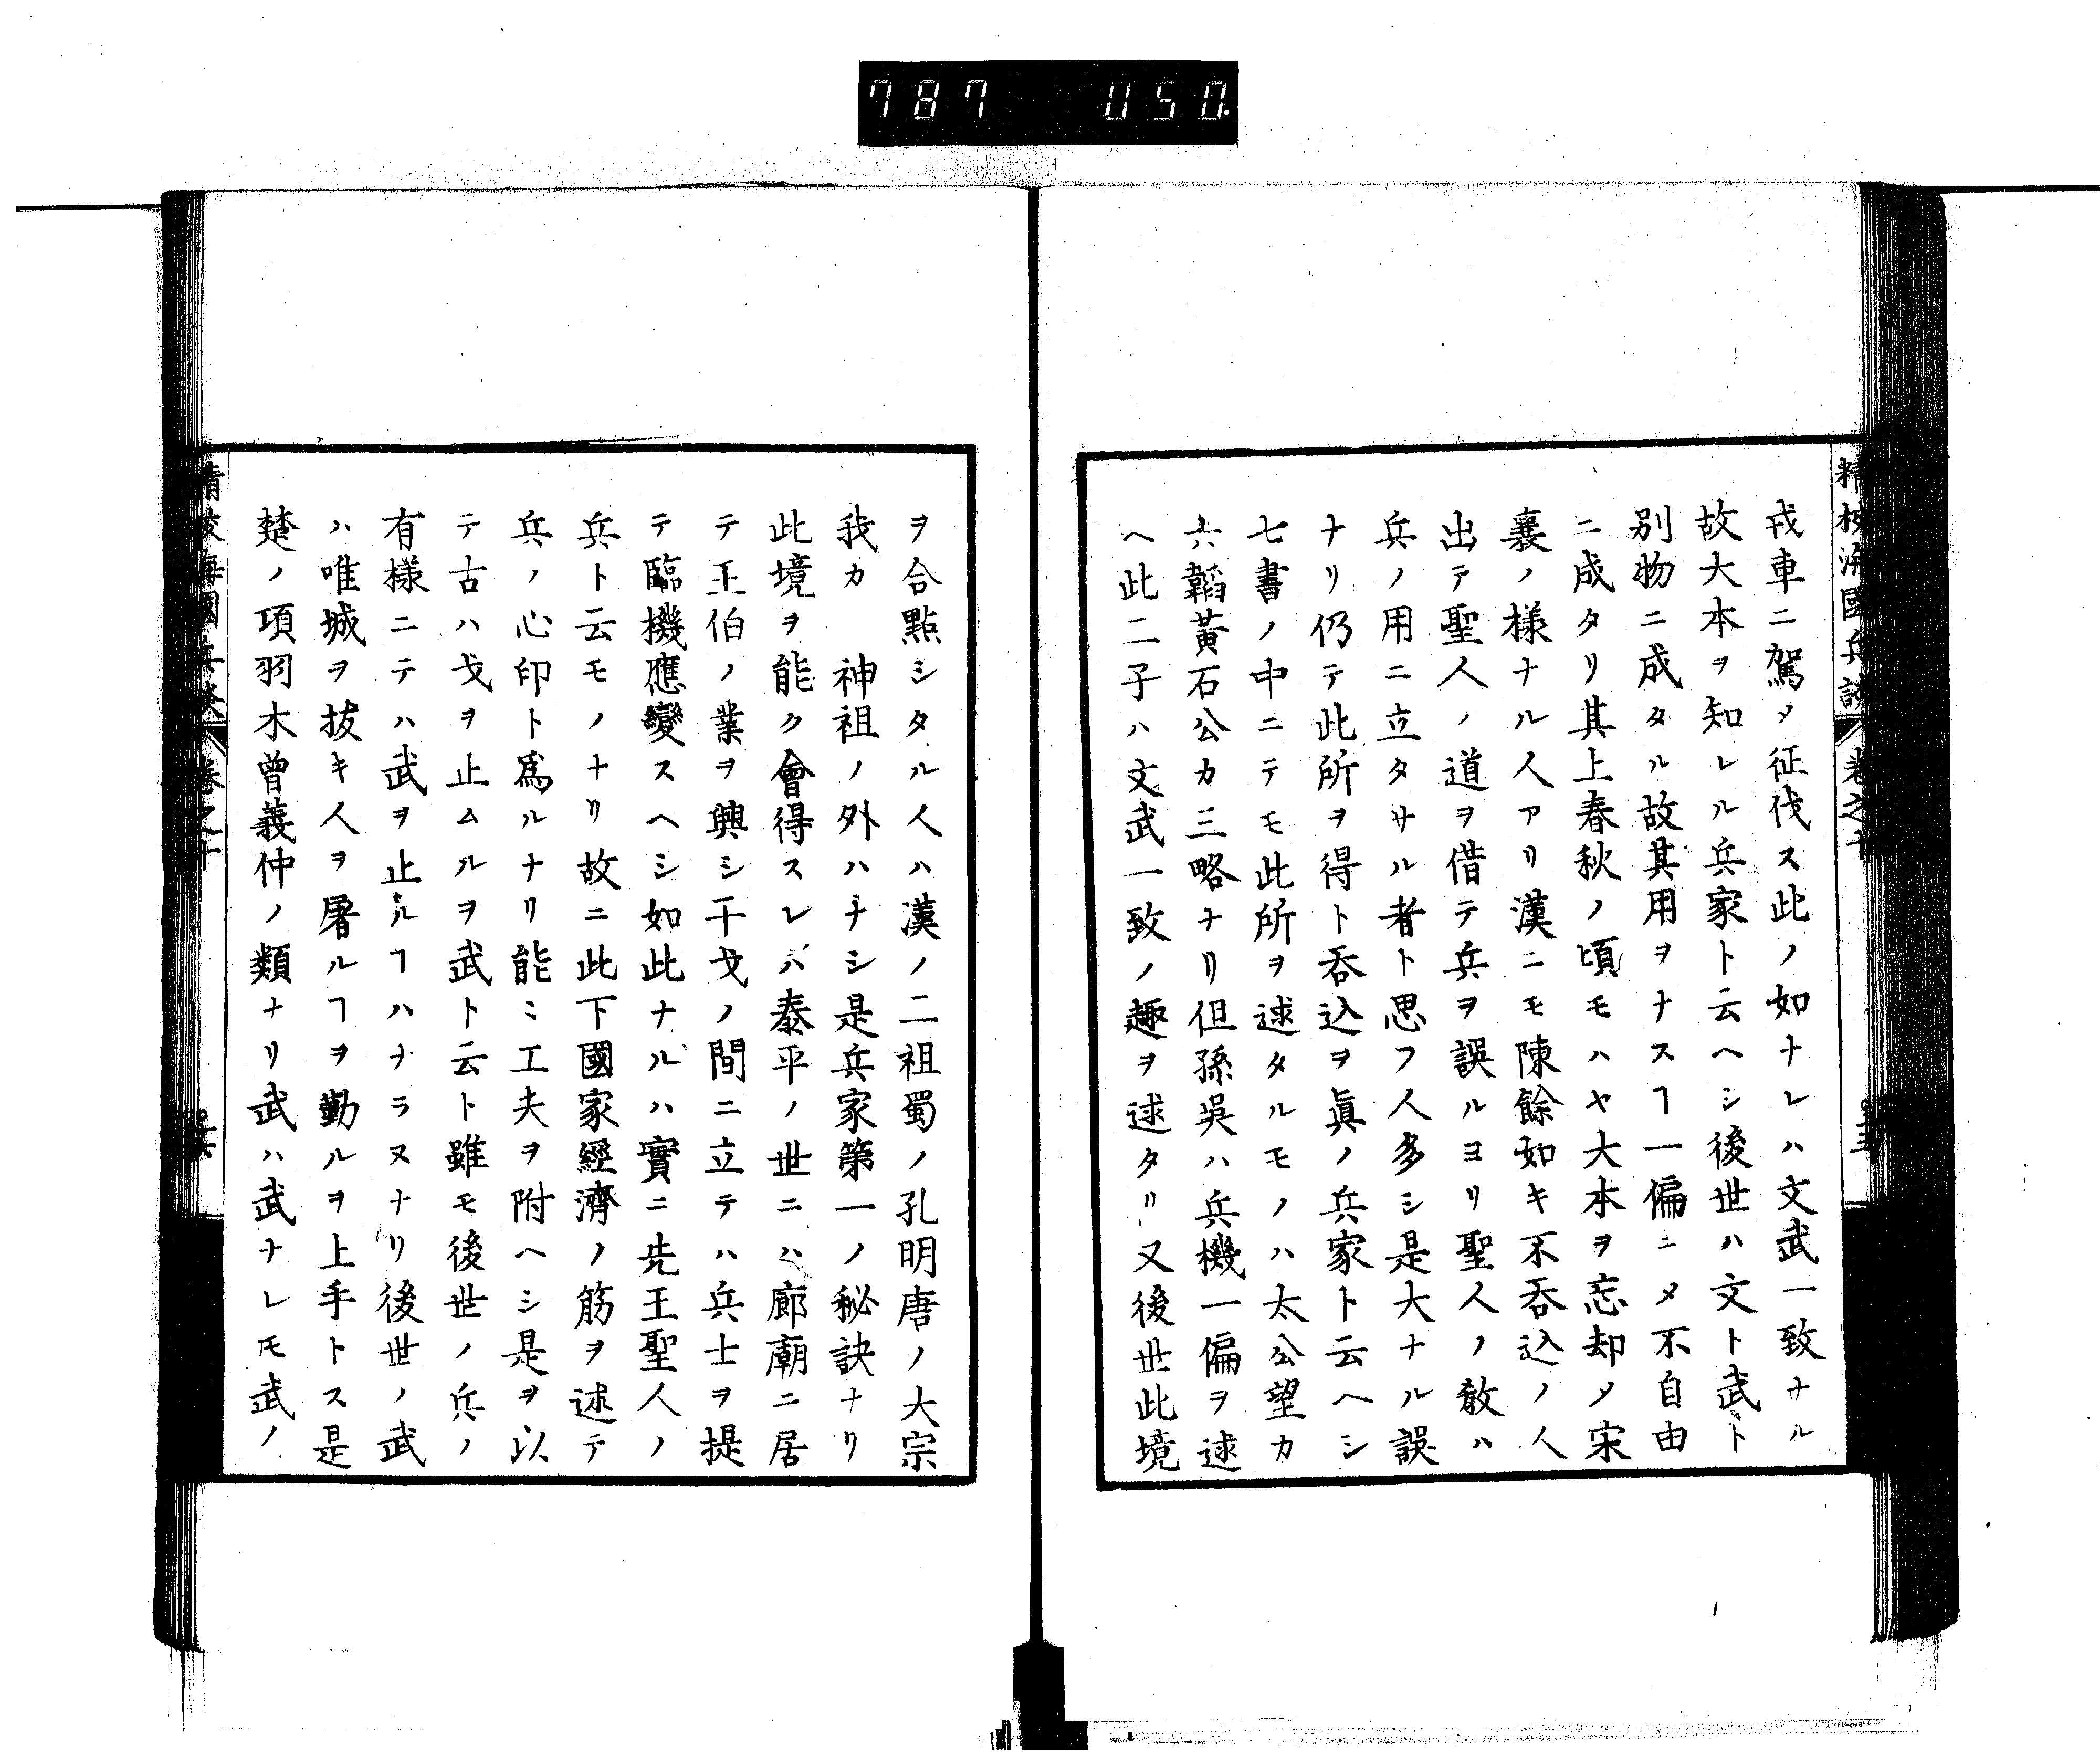 787 050
精校海國兵談 卷之十
戎車ニ駕〆征伐ス此ノ如ナレハ文武一致ナル
故大本ヲ知レル兵家ト云ヘシ後世ハ文ト武ト
別物ニ成タル故其用ヲナスヿ一偏ニ〆不自由
ニ成タリ其上春秋ノ頃モハヤ大本ヲ忘却〆宋
襄ノ樣ナル人アリ漢ニモ陳餘如キ不呑込ノ人
出テ聖人ノ道ヲ借テ兵ヲ誤ルヨリ聖人ノ敎ハ
兵ノ用ニ立タサル者ト思フ人多シ是大ナル誤
ナリ仍テ此所ヲ得ト呑込ヲ眞ノ兵家ト云ヘシ
七書ノ中ニテモ此所ヲ逑タルモノハ太公望カ
六韜黃石公カ三略ナリ但孫吳ハ兵機一偏ヲ逑
ヘ此二子ハ文武一致ノ趣ヲ逑タリ又後世此境
ヲ合點シタル人ハ漢ノ二祖蜀ノ孔明唐ノ大宗
我カ 神祖ノ外ハナシ是兵家第一ノ秘訣ナリ
此境ヲ能ク會得スレハ泰平ノ世ニハ廊廟ニ居
テ王伯ノ業ヲ興シ干戈ノ間ニ立テハ兵士ヲ提
テ臨機應變スヘシ如此ナルハ實ニ先王聖人ノ
兵ト云モノナリ故ニ此下國家經濟ノ筋ヲ述テ
兵ノ心印ト爲ルナリ能ミ工夫ヲ附ヘシ是ヲ以
テ古ハ戈ヲ止ムルヲ武ト云ト雖モ後世ノ兵ノ
有樣ニテハ武ヲ止ルヿハナラヌナリ後世ノ武
ハ唯城ヲ拔キ人ヲ屠ルヿヲ勤ルヲ上手トス是
楚ノ項羽木曾義仲ノ類ナリ武ハ武ナレモ武ノ
精校海國兵談 卷之十